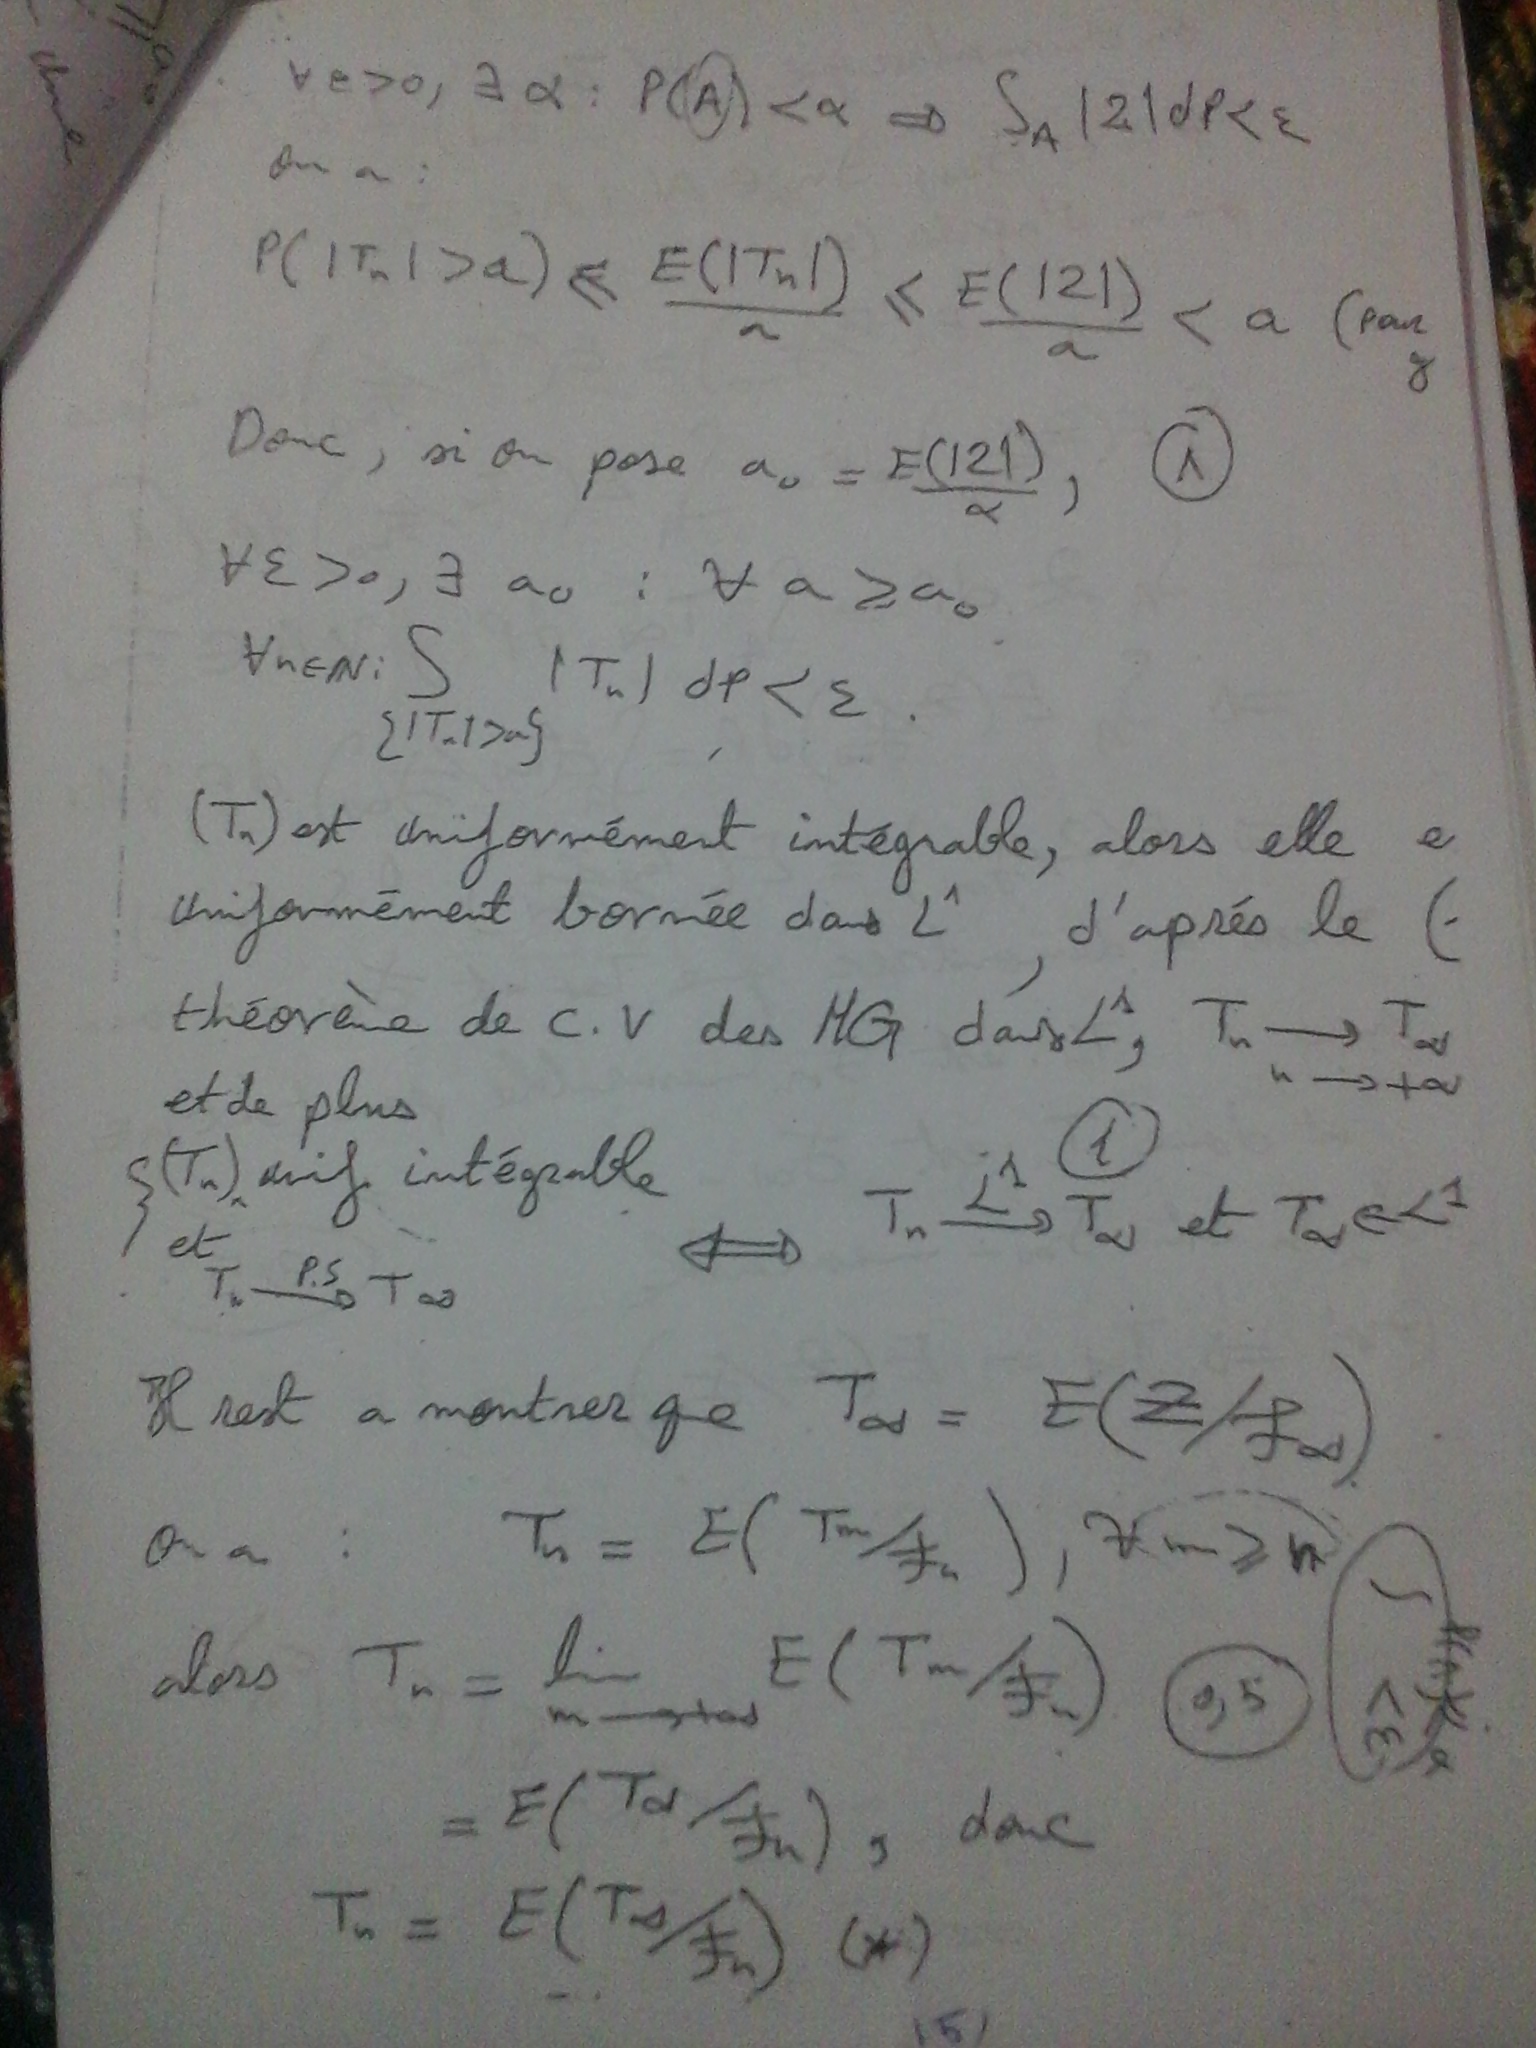 ∀ε>0, ∃ α : P(A) < α ⇒ ∫_A |Z| dP < ε
on a :
P(|Tn| > a) ≤ E(|Tn|)/a ≤ E(|Z|)/a < a (pour
Donc, si on pose a₀ = E(|Z|)/α, ①
∀ε>0, ∃ a₀ : ∀ a ≥ a₀
∀n∈ℕ: ∫_{|Tn|>a} |Tn| dP < ε.
(Tn) est uniformément intégrable, alors elle e
uniformément bornée dans L¹, d'aprés le (
théorème de C.V des MG dans L¹, Tn → T∞
n → +∞
et de plus
{(Tn)n unif. intégrable ①
et ⟺ Tn →^{L¹} T∞ et T∞ ∈ L¹
Tn →^{P.S} T∞
Il rest a montrer que T∞ = E(Z/ℱ∞).
on a : Tn = E(Tm/ℱn), ∀ m ≥ n
alors Tn = lim_{m→+∞} E(Tm/ℱn) 0,5
= E(T∞/ℱn), donc
Tn = E(T∞/ℱn) (*)
(5)